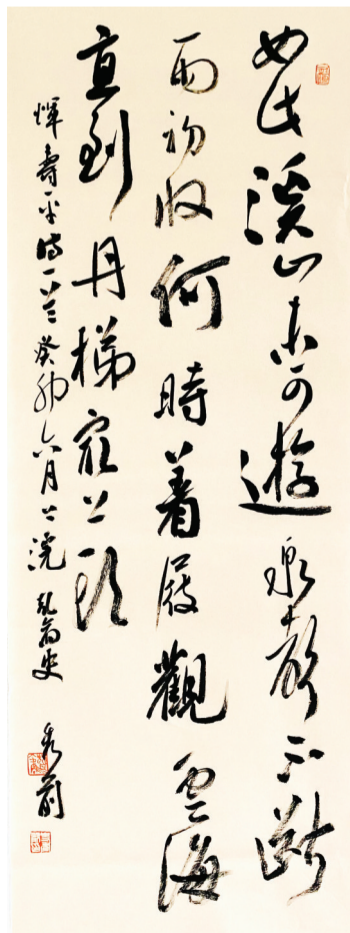 如此溪山亦可遊泉聲不斷
雨初收何時着屐觀雲海
直到丹梯最上頭
惲壽平詩一首癸卯六月上浣
秀前